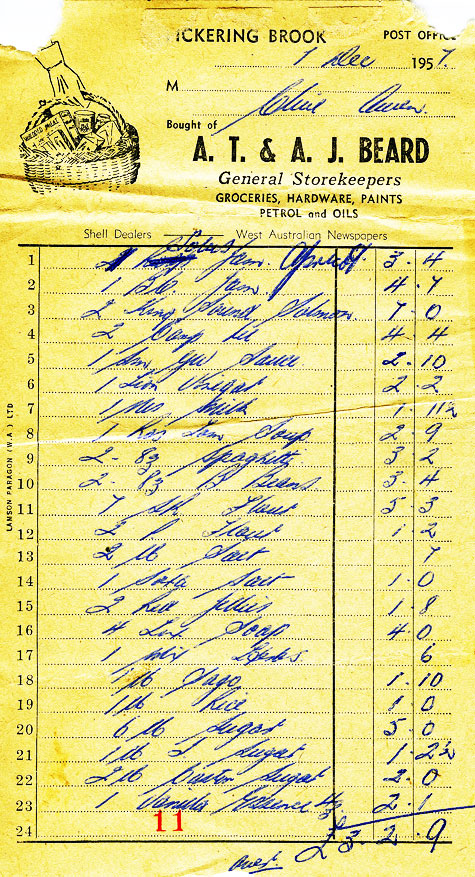 ICKERING BROOK POST OFFICE
1 Dec 1957
M Clive Owen.
Bought of
A. T. & A. J. BEARD
General Storekeepers
GROCERIES, HARDWARE, PAINTS
PETROL and OILS
Shell Dealers West Australian Newspapers
1 Jam. Apricot 3 . 4
2 1 Jam. 4 . 7
3 2 King Sound Salmon 7 . 0
4 2 4 . 4
5 1 Sauce 2 . 10
6 1 Vinegar 2 . 2
7 1 Milk 1 . 11½
8 1 Tom Soup 2 . 9
9 2 - 83 Spaghetti 3 2
10 2 - 83 B Beans 3 . 4
11 7 Flour 5 3
12 2 P Flour 1 2
13 2 lb Salt 7
14 1 Salt 1 . 0
15 2 Jellies 1 . 8
16 4 Lux Soap 4 . 0
17 1 Herbs 6
18 1 lb Sago 1 . 10
19 1 lb Rice 1 0
20 6 lb Sugar 5 . 0
21 1 lb I Sugar 1 . 2½
22 2 lb Castor Sugar 2 . 0
23 1 Vanilla Essence 2 . 1
24 £3 . 2 . 9
11
over.
LAMSON PARAGON (W.A.) LTD